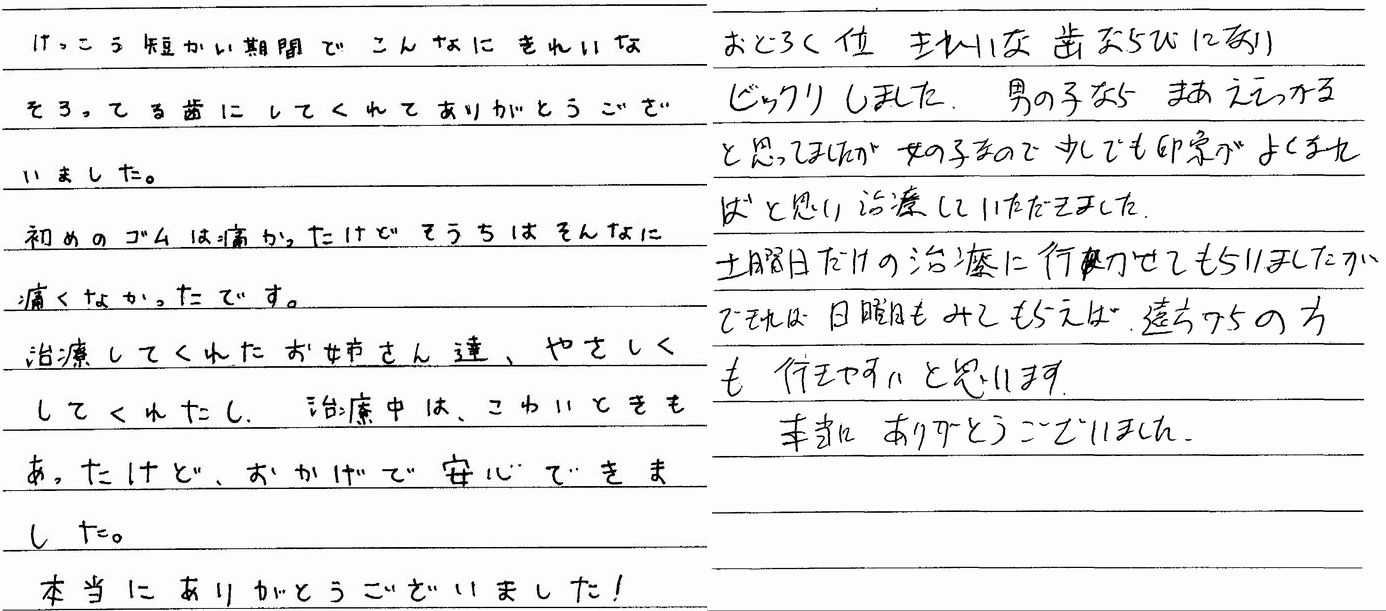 けっこう短かい期間でこんなにきれいな
そろってる歯にしてくれてありがとうござ
いました。
初めのゴムは痛かったけどそうちはそんなに
痛くなかったです。
治療してくれたお姉さん達、やさしく
してくれたし、治療中は、こわいときも
あったけど、おかげで安心できま
した。
本当にありがとうございました！
おどろく位 きれいな歯ならびになり
ビックリしました。男の子なら まあええっかる
と思ってましたが 女の子なので少しでも印象がよくなれ
ばと思い治療していただきました。
土曜日だけの治療に行かせてもらいましたが
できれば 日曜日もみてもらえば、遠方からの方
も 行きやすいと思います。
本当に ありがとうございました。